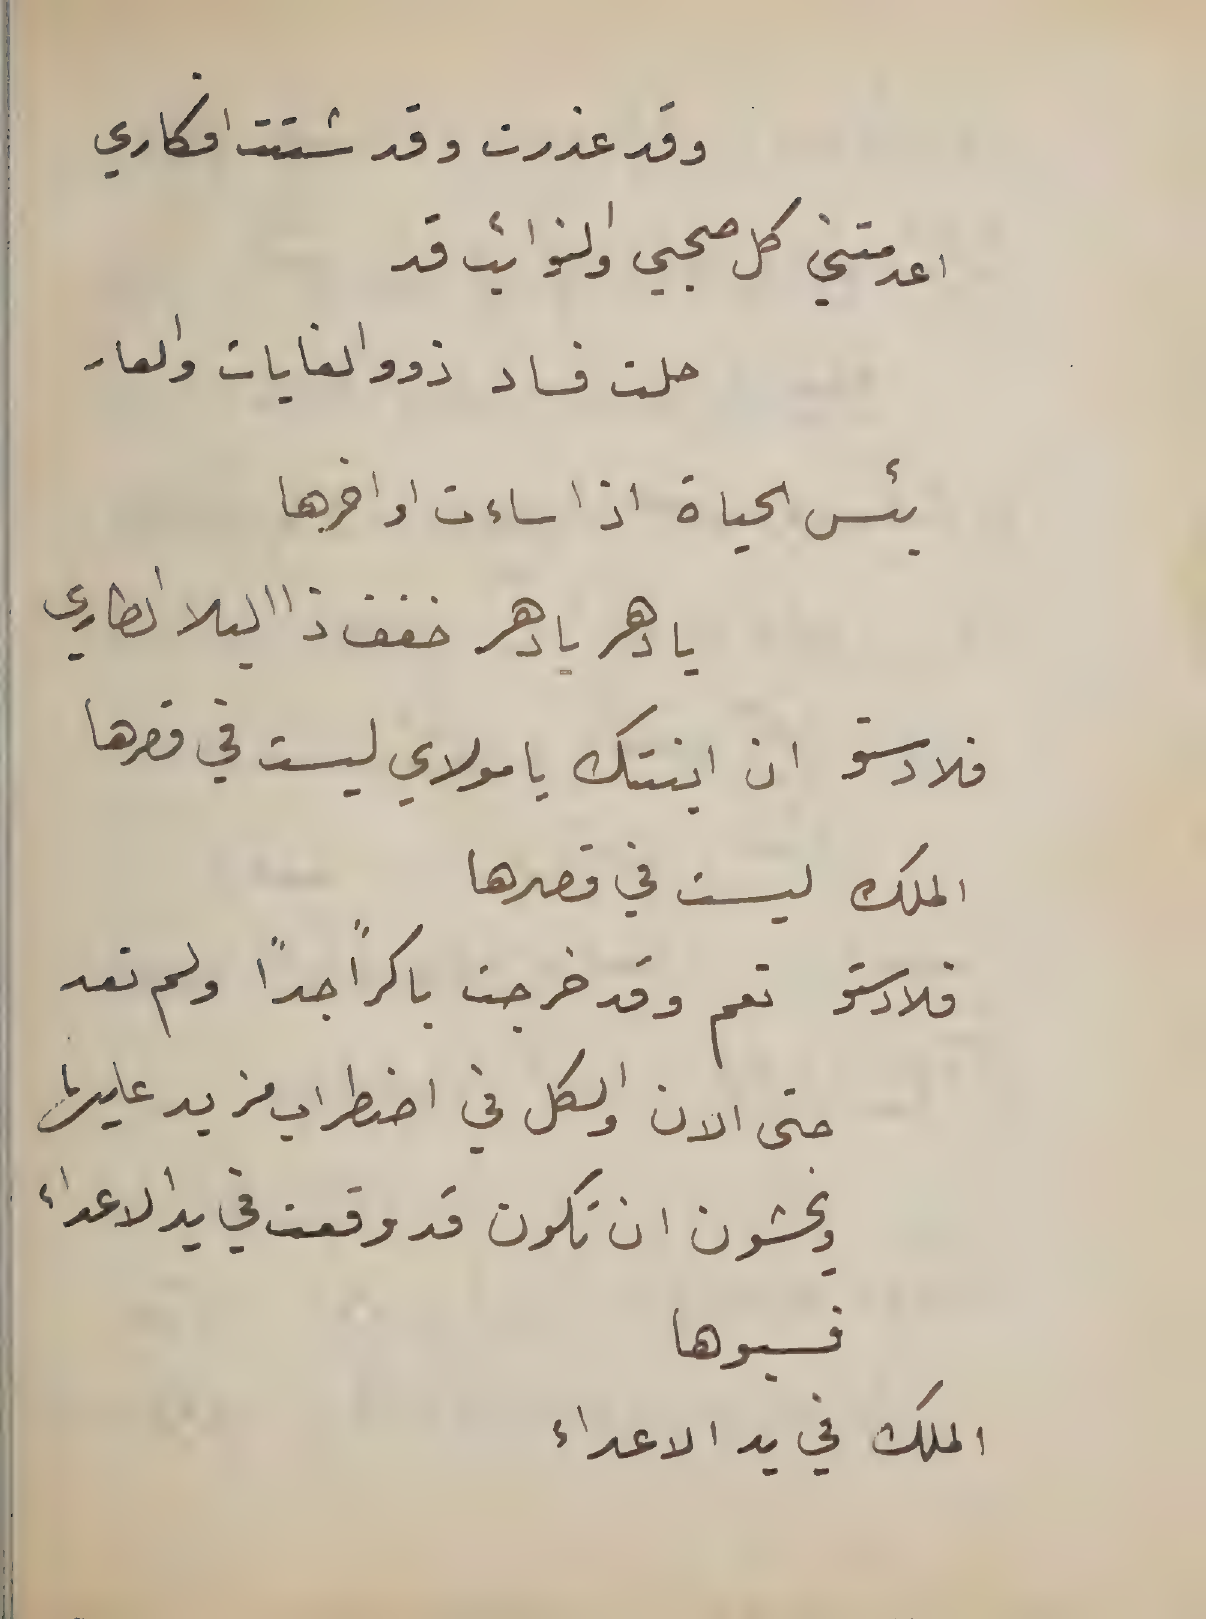 وقد عذرت وقد شتتت افكاري
اعدمتني كل صحبي والنوائب قد
حلت فساد ذوو الغايات والعار
بئس الحياة اذا ساءت اواخرها
يا دهر يا دهر خفف ذا البلا الطاري
فلادستو ان ابنتك يا مولاي ليست في قصرها
الملك ليست في قصرها
فلادستو نعم وقد خرجت باكراً جداً ولم تعد
حتى الان والكل في اضطراب مزيد عليها
ويخشون ان تكون قد وقعت في يد الاعداء
فسبوها
الملك في يد الاعداء